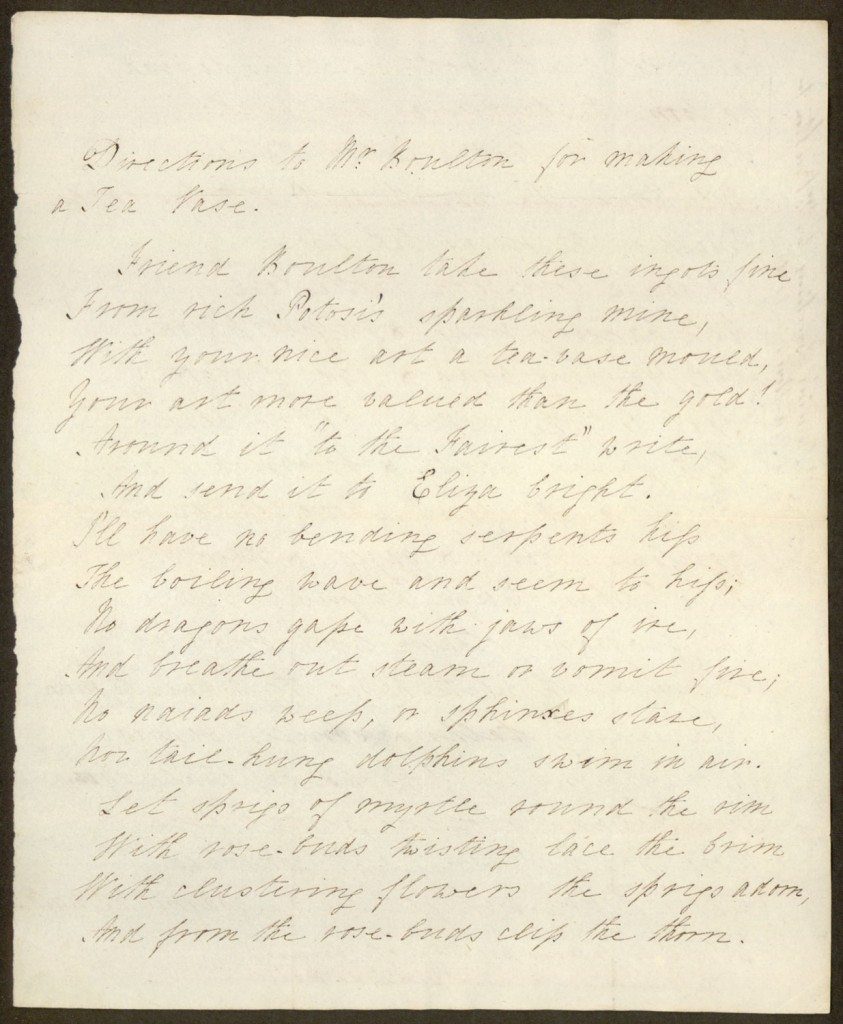 Directions to Mr Boulton for making
a Tea Vase.
Friend Boulton take these ingots fine
From rich Potosi's sparkling mine,
With your nice art a tea-vase mould,
Your art more valued than the gold!
Around it "to the Fairest" write,
And send it to Eliza bright.
I'll have no bending serpents kiſs
The boiling wave and seem to hiſs;
No dragons gape with jaws of ire,
And breathe out steam or vomit fire;
No naiads weep, or sphinxes stare,
Nor tail-hung dolphins swim in air.
Let sprigs of myrtle round the rim
With rose-buds twisting lace the brim
With clustering flowers the sprigs adorn,
And from the rose-buds clip the thorn.